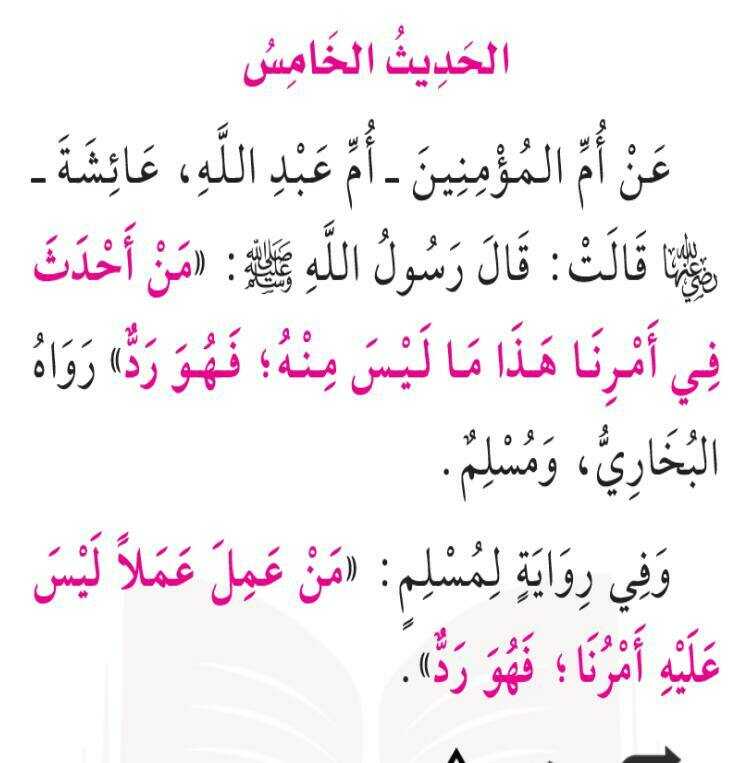 الحَدِيثُ الخَامِسُ
عَنْ أُمِّ المُؤْمِنِينَ ـ أُمِّ عَبْدِ اللَّهِ، عَائِشَةَ ـ
رضي الله عنها قَالَتْ: قَالَ رَسُولُ اللَّهِ ﷺ: «مَنْ أَحْدَثَ
فِي أَمْرِنَا هَذَا مَا لَيْسَ مِنْهُ؛ فَهُوَ رَدٌّ» رَوَاهُ
البُخَارِيُّ، وَمُسْلِمٌ.
وَفِي رِوَايَةٍ لِمُسْلِمٍ: «مَنْ عَمِلَ عَمَلاً لَيْسَ
عَلَيْهِ أَمْرُنَا؛ فَهُوَ رَدٌّ».